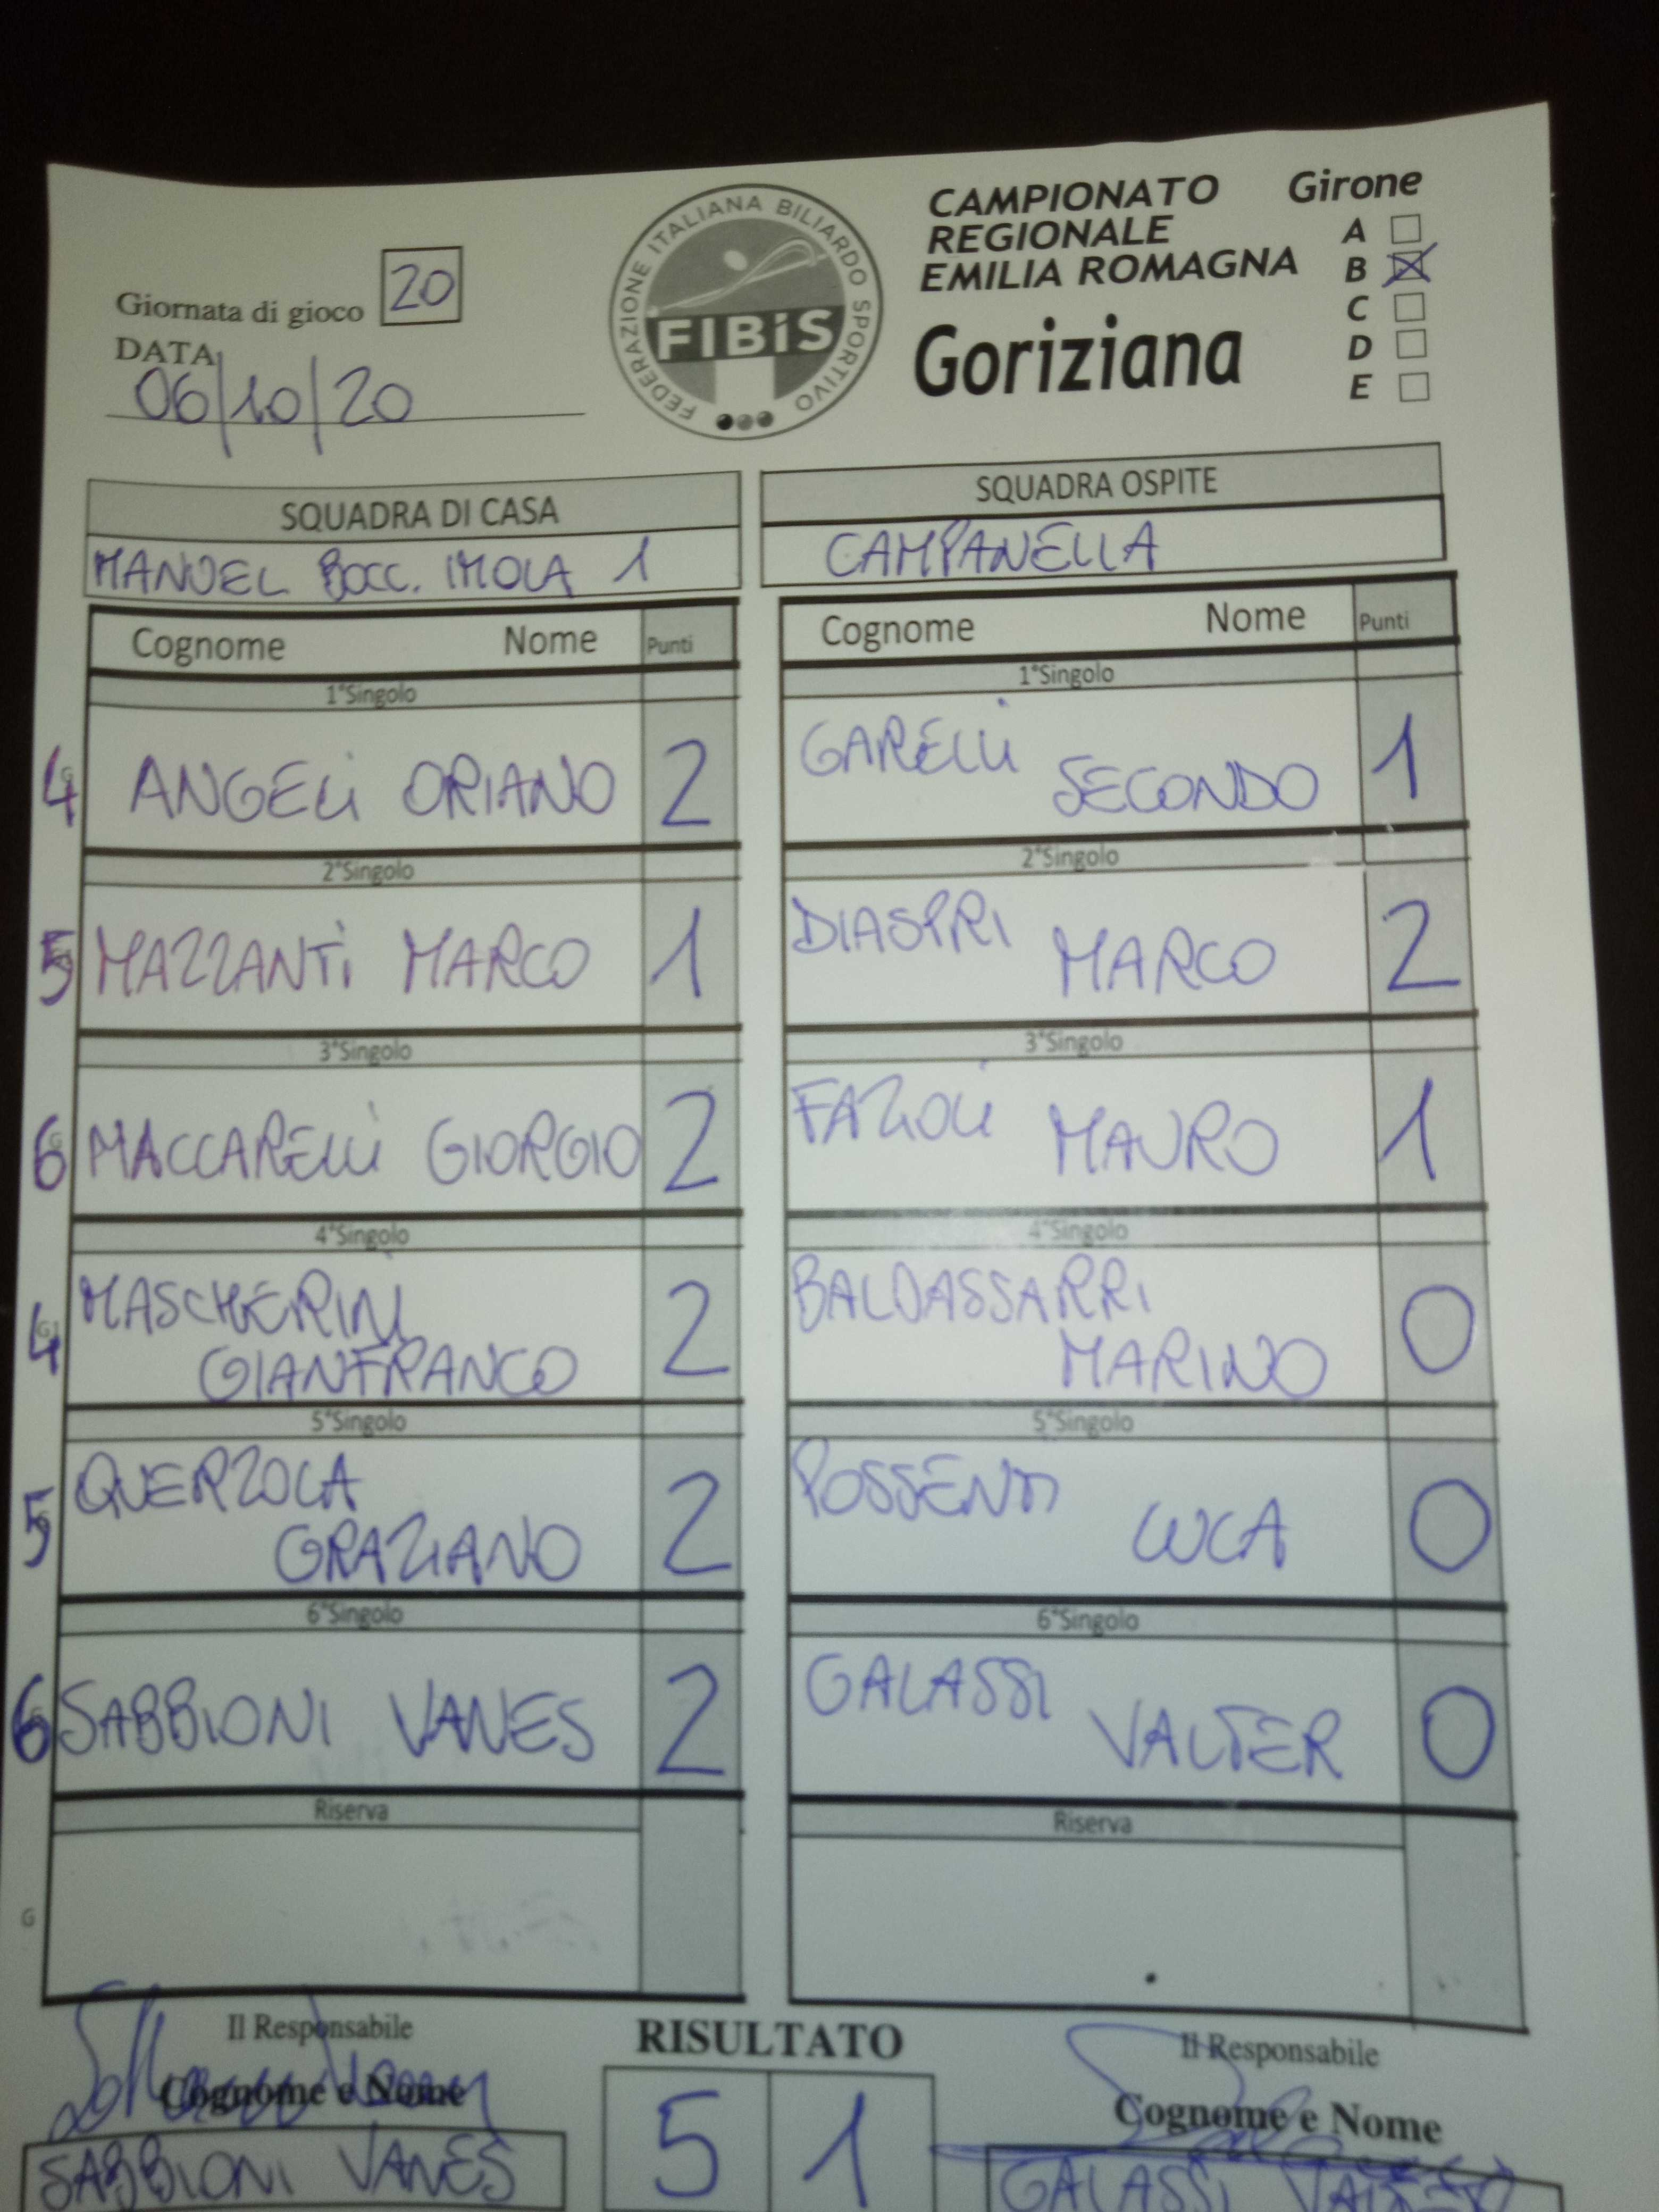 FEDERAZIONE ITALIANA BILIARDO SPORTIVO
FIBiS
CAMPIONATO
REGIONALE
EMILIA ROMAGNA
Goriziana
Girone
A
B
C
D
E
Giornata di gioco 20
DATA
06/10/20
SQUADRA DI CASA
MANUEL BOCC. IMOLA 1
SQUADRA OSPITE
CAMPANELLA
Cognome Nome Punti
Cognome Nome Punti
1°Singolo
1°Singolo
4 ANGELi ORIANO 2
GARELLi SECONDO 1
2°Singolo
2°Singolo
5 MAZZANTi MARCO 1
DIASPRI MARCO 2
3°Singolo
3°Singolo
6 MACCARELLi GIORGIO 2
FAZIOLi MAURO 1
4°Singolo
4°Singolo
4 MASCHERINI
GIANFRANCO 2
BALDASSARRI
MARINO 0
5°Singolo
5°Singolo
5 QUERZOLA
GRAZIANO 2
POSSENTI
LUCA 0
6°Singolo
6°Singolo
6 SABBIONI VANES 2
GALASSI
VALTER 0
Riserva
Riserva
G
Il Responsabile
Cognome e Nome
SABBIONI VANES
RISULTATO
5 1
Il Responsabile
Cognome e Nome
GALASSI VALTER